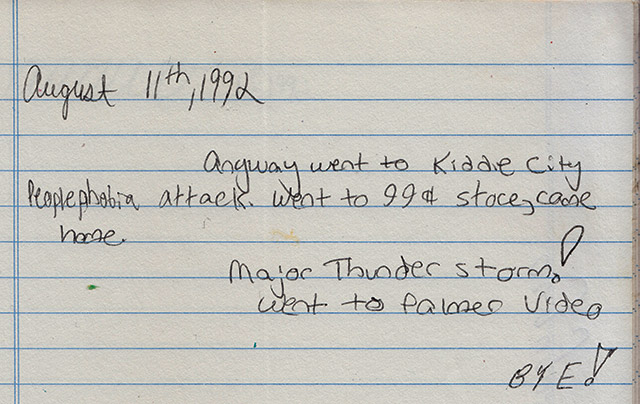 August 11th, 1992
Anyway went to Kiddie City
Peoplephobia attack. went to 99¢ store, came
home.
Major Thunder storm!
went to Palmer Video
BYE!